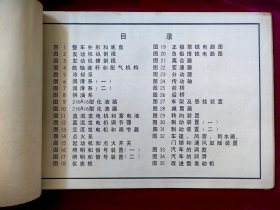 目 录
图 1 整车外形和底盘
图 2 发动机纵剖视
图 3 发动机横剖视
图 4 曲轴连杆和配气机构
图 5 冷却系
图 6 润滑系（一）
图 7 润滑系（二）
图 8 供油系
图 9 型化油器
图 10 型化油器
图 11 直流发电机和蓄电池
图 12 直流发电机调节器
图 13 交流发电机和调节器
图 14 点火系
图 15 起动机和点火开关
图 16 照明和信号装置（一）
图 17 照明和信号装置（二）
图 18 仪表板
图 19 正极搭铁电路图
图 20 负极搭铁电路图
图 21 离合器
图 22 变速器
图 23 分动器
图 24 传动轴
图 25 前桥
图 26 后桥
图 27 车架及悬挂装置
图 28 减震器
图 29 转向装置
图 30 制动装置（一）
图 31 制动装置（二）
图 32 车篷、风窗、刮水器、
门锁和通风取暖装置
图 33 汽车的调整
图 34 汽车的润滑
图 35 改进型发动机